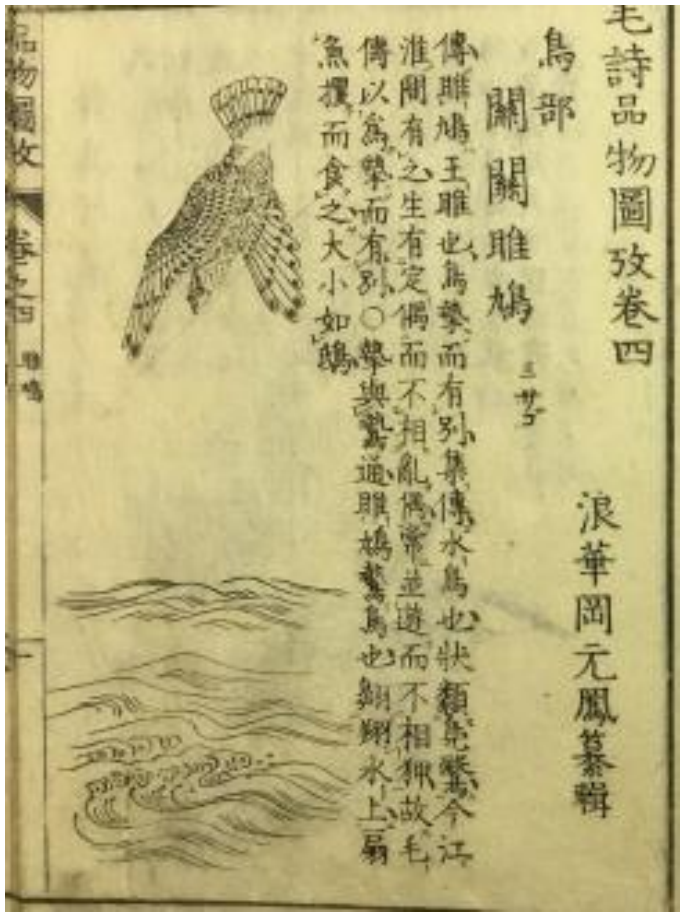 毛詩品物圖攷卷四
浪華岡元鳳纂輯
鳥部
關關雎鳩 ミサゴ
傳雎鳩王雎也鳥摯而有別集傳水鳥也狀類鳧鷖今江
淮間有之生有定偶而不相亂偶常並遊而不相狎故毛
傳以爲摯而有別〇摯與鷙通雎鳩鷙鳥也翱翔水上扇
魚攫而食之大小如鴟
品物圖攷 卷之四 雎鳩 一